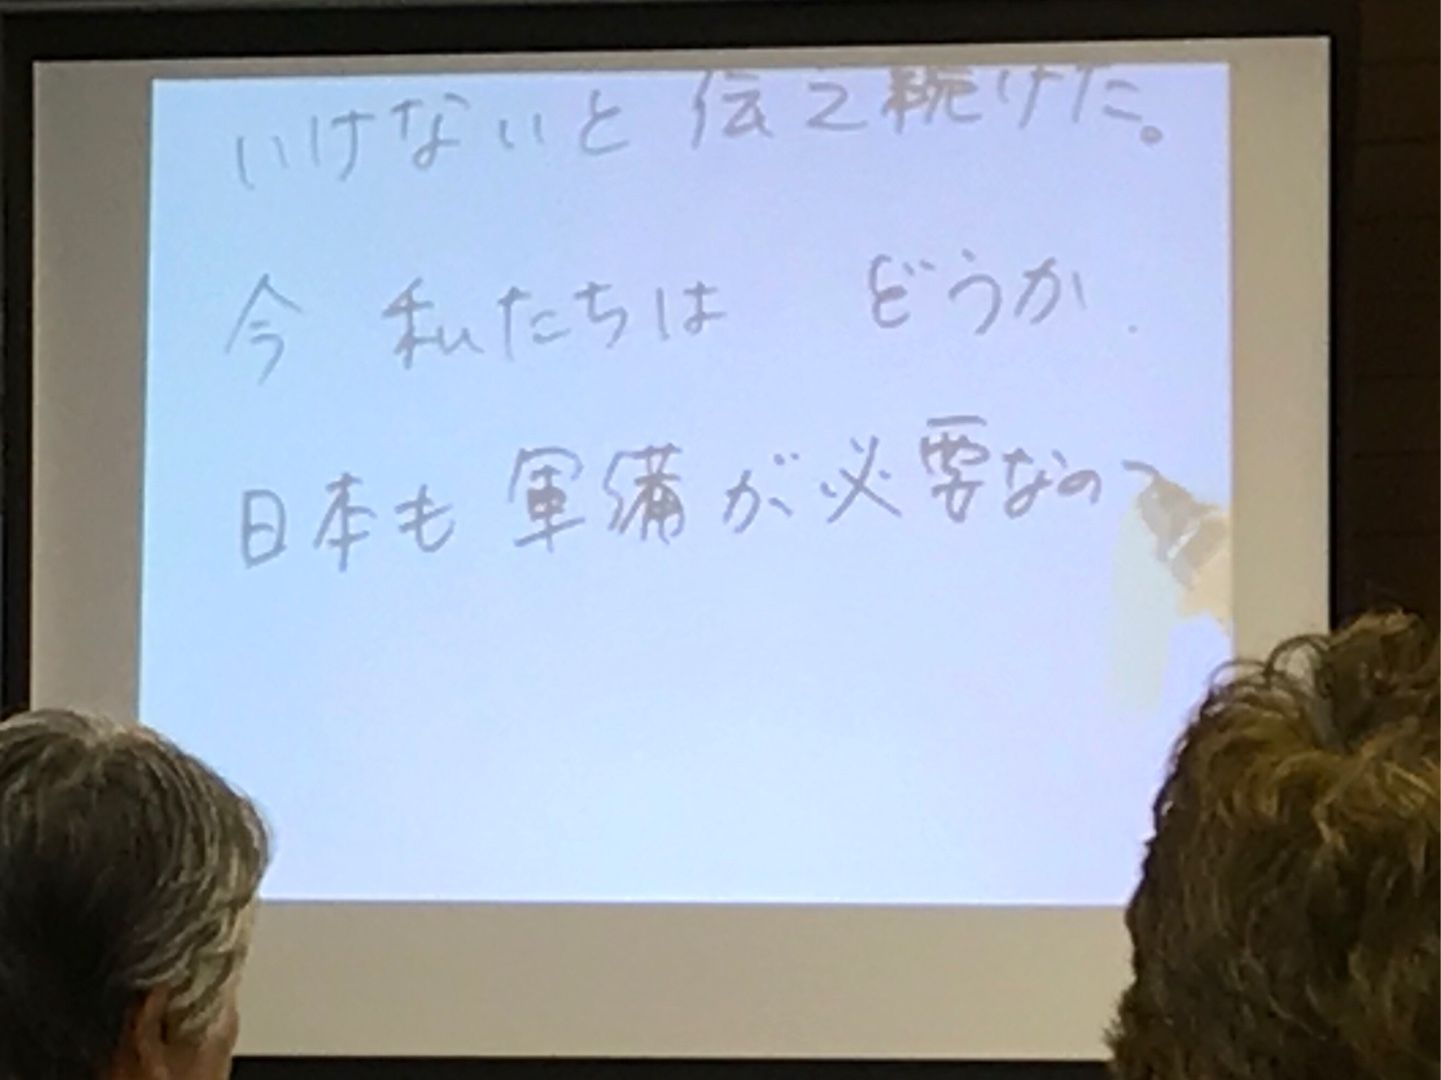 いけないと 伝え続けた。
今 私たちは どうか.
日本も 軍備が必要なの